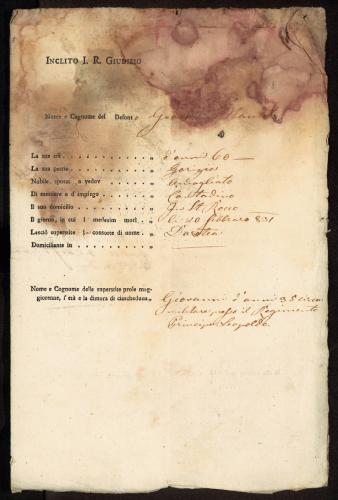 INCLITO I. R. GIUDIZIO
Nome e Cognome del Defonto
La sua età . . . . . . . . „ d'anni 60 —
La sua patria . . . . . . . „ Gorizia
Nobile, sposo, o vedovo . . . . „ Ammogliato
Di mestiere o d'impiego . . . . „ Contadino
Il suo domicilio . . . . . . „ St. Rocco
Il giorno, in cui 'l medesimo morì . „ li 20 febbraro 831
Lasciò superstite 'l consorte di nome . „
Domiciliante in . . . . . . „
Nome e Cognome della superstite prole mag-
giorenne, l'età e la dimora di ciascheduna „ Giovanni d'anni 35 circa
militare presso il Regimento
Principe Leopoldo